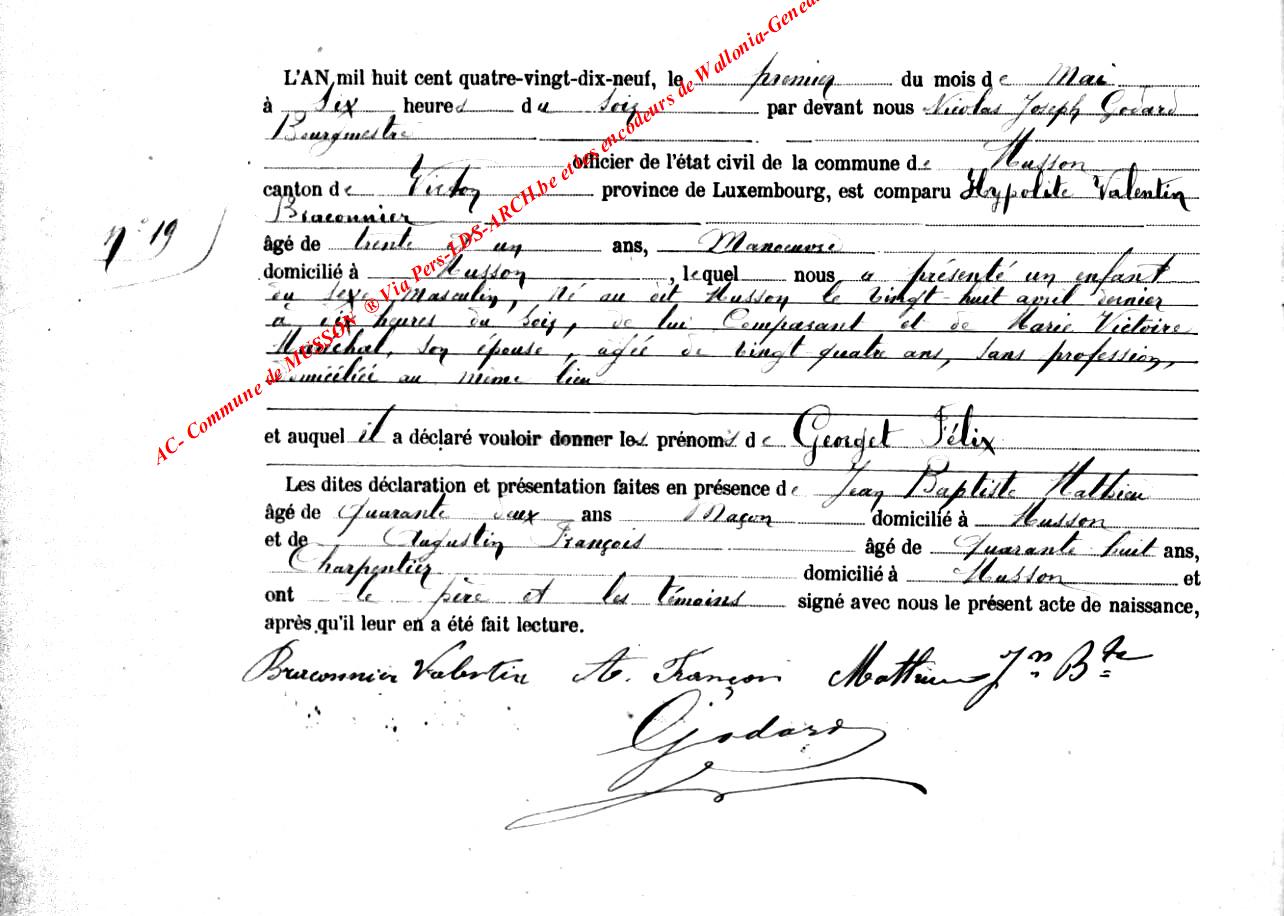 L'AN mil huit cent quatre-vingt-dix-neuf, le premier du mois de Mai
à Six heures du soir par devant nous Nicolas Joseph Godard
Bourgmestre
officier de l'état civil de la commune de Musson
canton de Virton province de Luxembourg, est comparu Hypolite Valentin
Braconnier
n° 19
âgé de trente et un ans, Manoeuvre
domicilié à Musson, lequel nous a présenté un enfant
du sexe Masculin, Né au dit Musson le vingt-huit avril dernier
à heures du soir, de lui Comparant et de Marie Victoire
Maréchal, son épouse, agée de vingt quatre ans, sans profession,
domiciliée au même lieu
et auquel il a déclaré vouloir donner les prénoms de Georget Félix
Les dites déclaration et présentation faites en présence de Jean Baptiste Mathieu
âgé de Quarante deux ans Maçon domicilié à Musson
et de Augustin François âgé de Quarante huit ans,
Charpentier domicilié à Musson et
ont le père et les témoins signé avec nous le présent acte de naissance,
après qu'il leur en a été fait lecture.
Braconnier Valentin A. François Mathieu Jn Bte
Godard
AC- Commune de MUSSON ® Via Pers-LDS-ARCH.be et les encodeurs de Wallonia-Genea